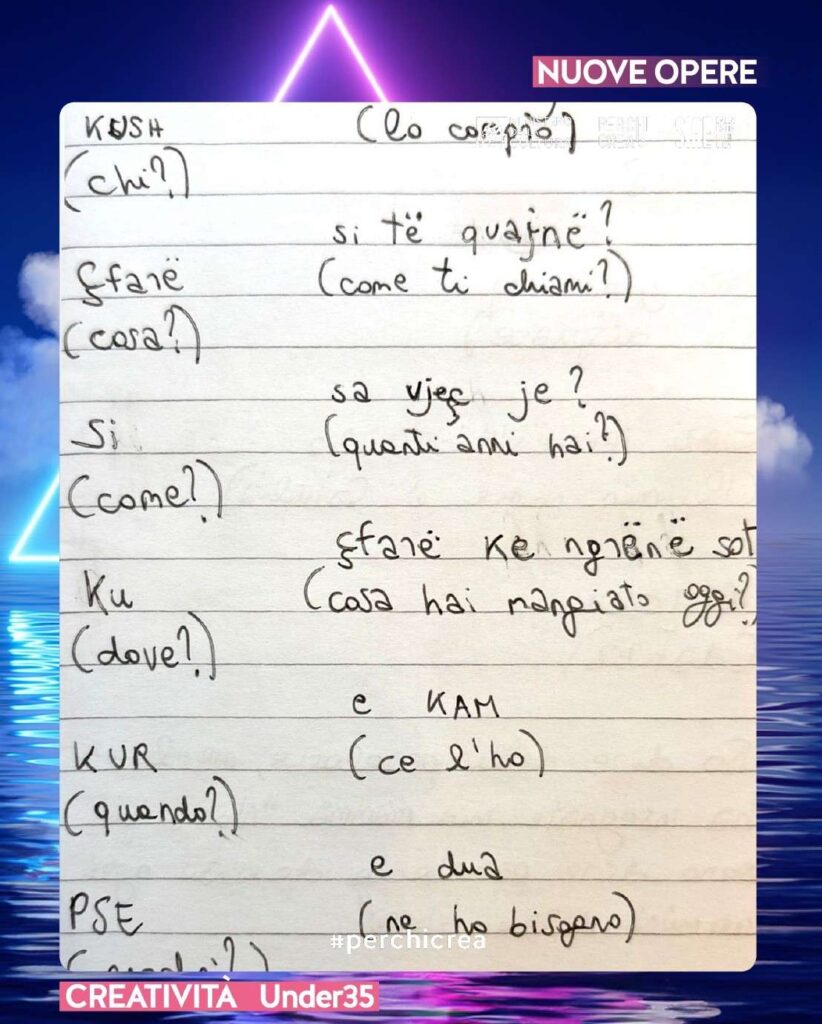 NUOVE OPERE
KUSH (lo compio)
(chi?)
si të quajnë?
Çfarë (come ti chiami?)
(cosa?)
sa vjeç je?
Si (quanti anni hai?)
(come?)
çfarë ke ngrënë sot
Ku (cosa hai mangiato oggi?)
(dove?)
e KAM
KUR (ce l'ho)
(quando?)
e dua
PSE (ne ho bisogno)
#perchicrea
CREATIVITÀ Under35